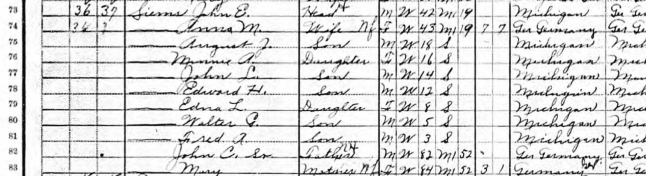 73 36 37 Siems John E. Head M W 42 M1 19 Michigan Ger Ger
74 36 Anna M. Wife F W 43 M1 19 7 7 Ger Germany Ger
75 August J. Son M W 18 S Michigan Mich
76 Minnie A. Daughter F W 16 S Michigan Mich
77 John L. Son M W 14 S Michigan Mich
78 Edward H. Son M W 12 S Michigan Mich
79 Edna L. Daughter F W 8 S Michigan Mich
80 Walter Son M W 5 S Michigan Mich
81 Fred A. Son M W 3 S Michigan
82 John C. Sr. Father M W 82 M1 52 Ger Germany Ger
83 Mary Mother F W 84 M1 52 3 1 Germany